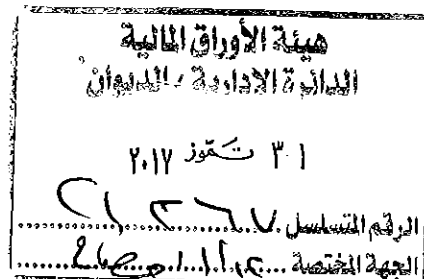 هيئة الأوراق المالية
الدائرة الإدارية / الديوان
٣١ تموز ٢٠١٧
الرقم المتسلسل
الجهة المختصة